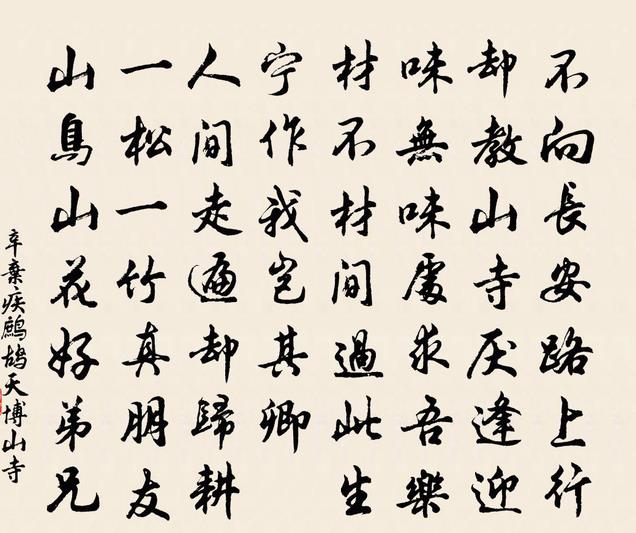 不向長安路上行
却教山寺厌逢迎
味無味處求吾樂
材不材間過此生
宁作我岂其卿
人间走遍却歸耕
一松一竹真朋友
山鳥山花好弟兄
辛棄疾鷓鴣天博山寺